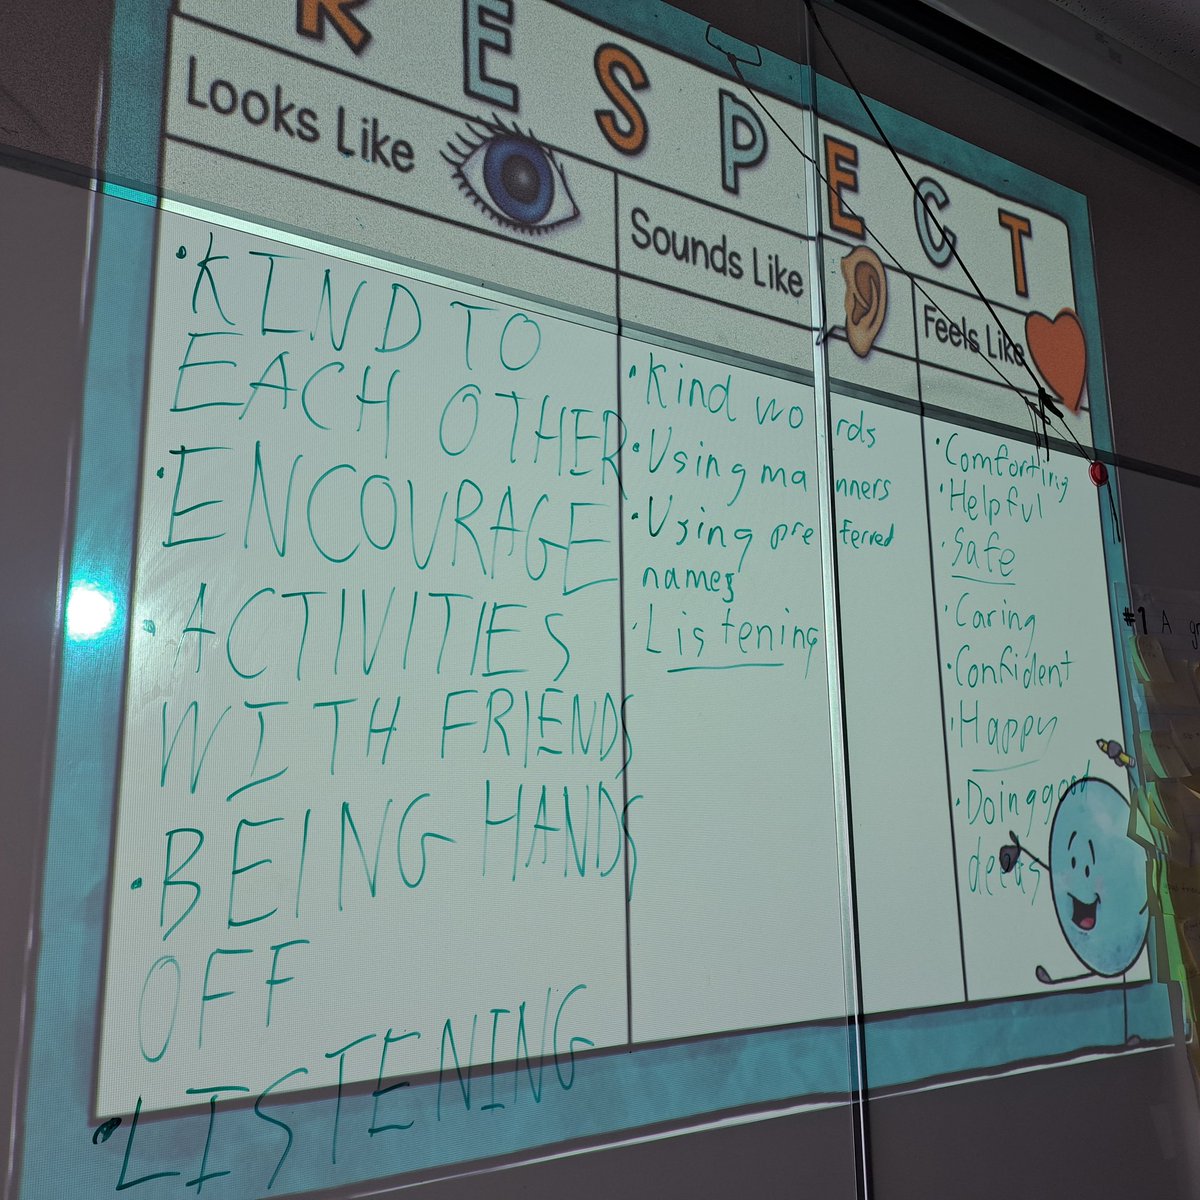 RESPECT
Looks Like
•KIND TO
EACH OTHER
•ENCOURAGE
•ACTIVITIES
WITH FRIENDS
•BEING HANDS
OFF
•LISTENING
Sounds Like
•Kind words
•Using manners
•Using preferred
names
•Listening
Feels Like
•Comforting
•Helpful
•Safe
•Caring
•Confident
•Happy
•Doing good
deeds
#1 A